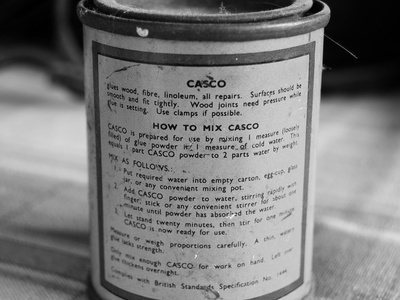 CASCO
glues wood, fibre, linoleum, all repairs. Surfaces should be
smooth and fit tightly. Wood joints need pressure while
glue is setting. Use clamps if possible.
HOW TO MIX CASCO
CASCO is prepared for use by mixing 1 measure (loosely
filled) of glue powder in 1 measure of cold water. This
equals 1 part CASCO powder to 2 parts water by weight.
MIX AS FOLLOWS:
1. Put required water into empty carton, egg-cup, glass
jar, or any convenient mixing pot.
2. Add CASCO powder to water, stirring rapidly with
finger, stick or any convenient stirrer for about one
minute until powder has absorbed the water.
3. Let stand twenty minutes, then stir for one minute.
CASCO is now ready for use.
Measure or weigh proportions carefully. A thin, watery
glue lacks strength.
Only mix enough CASCO for work on hand. Left over
glue thickens overnight.
Complies with British Standards Specification No.